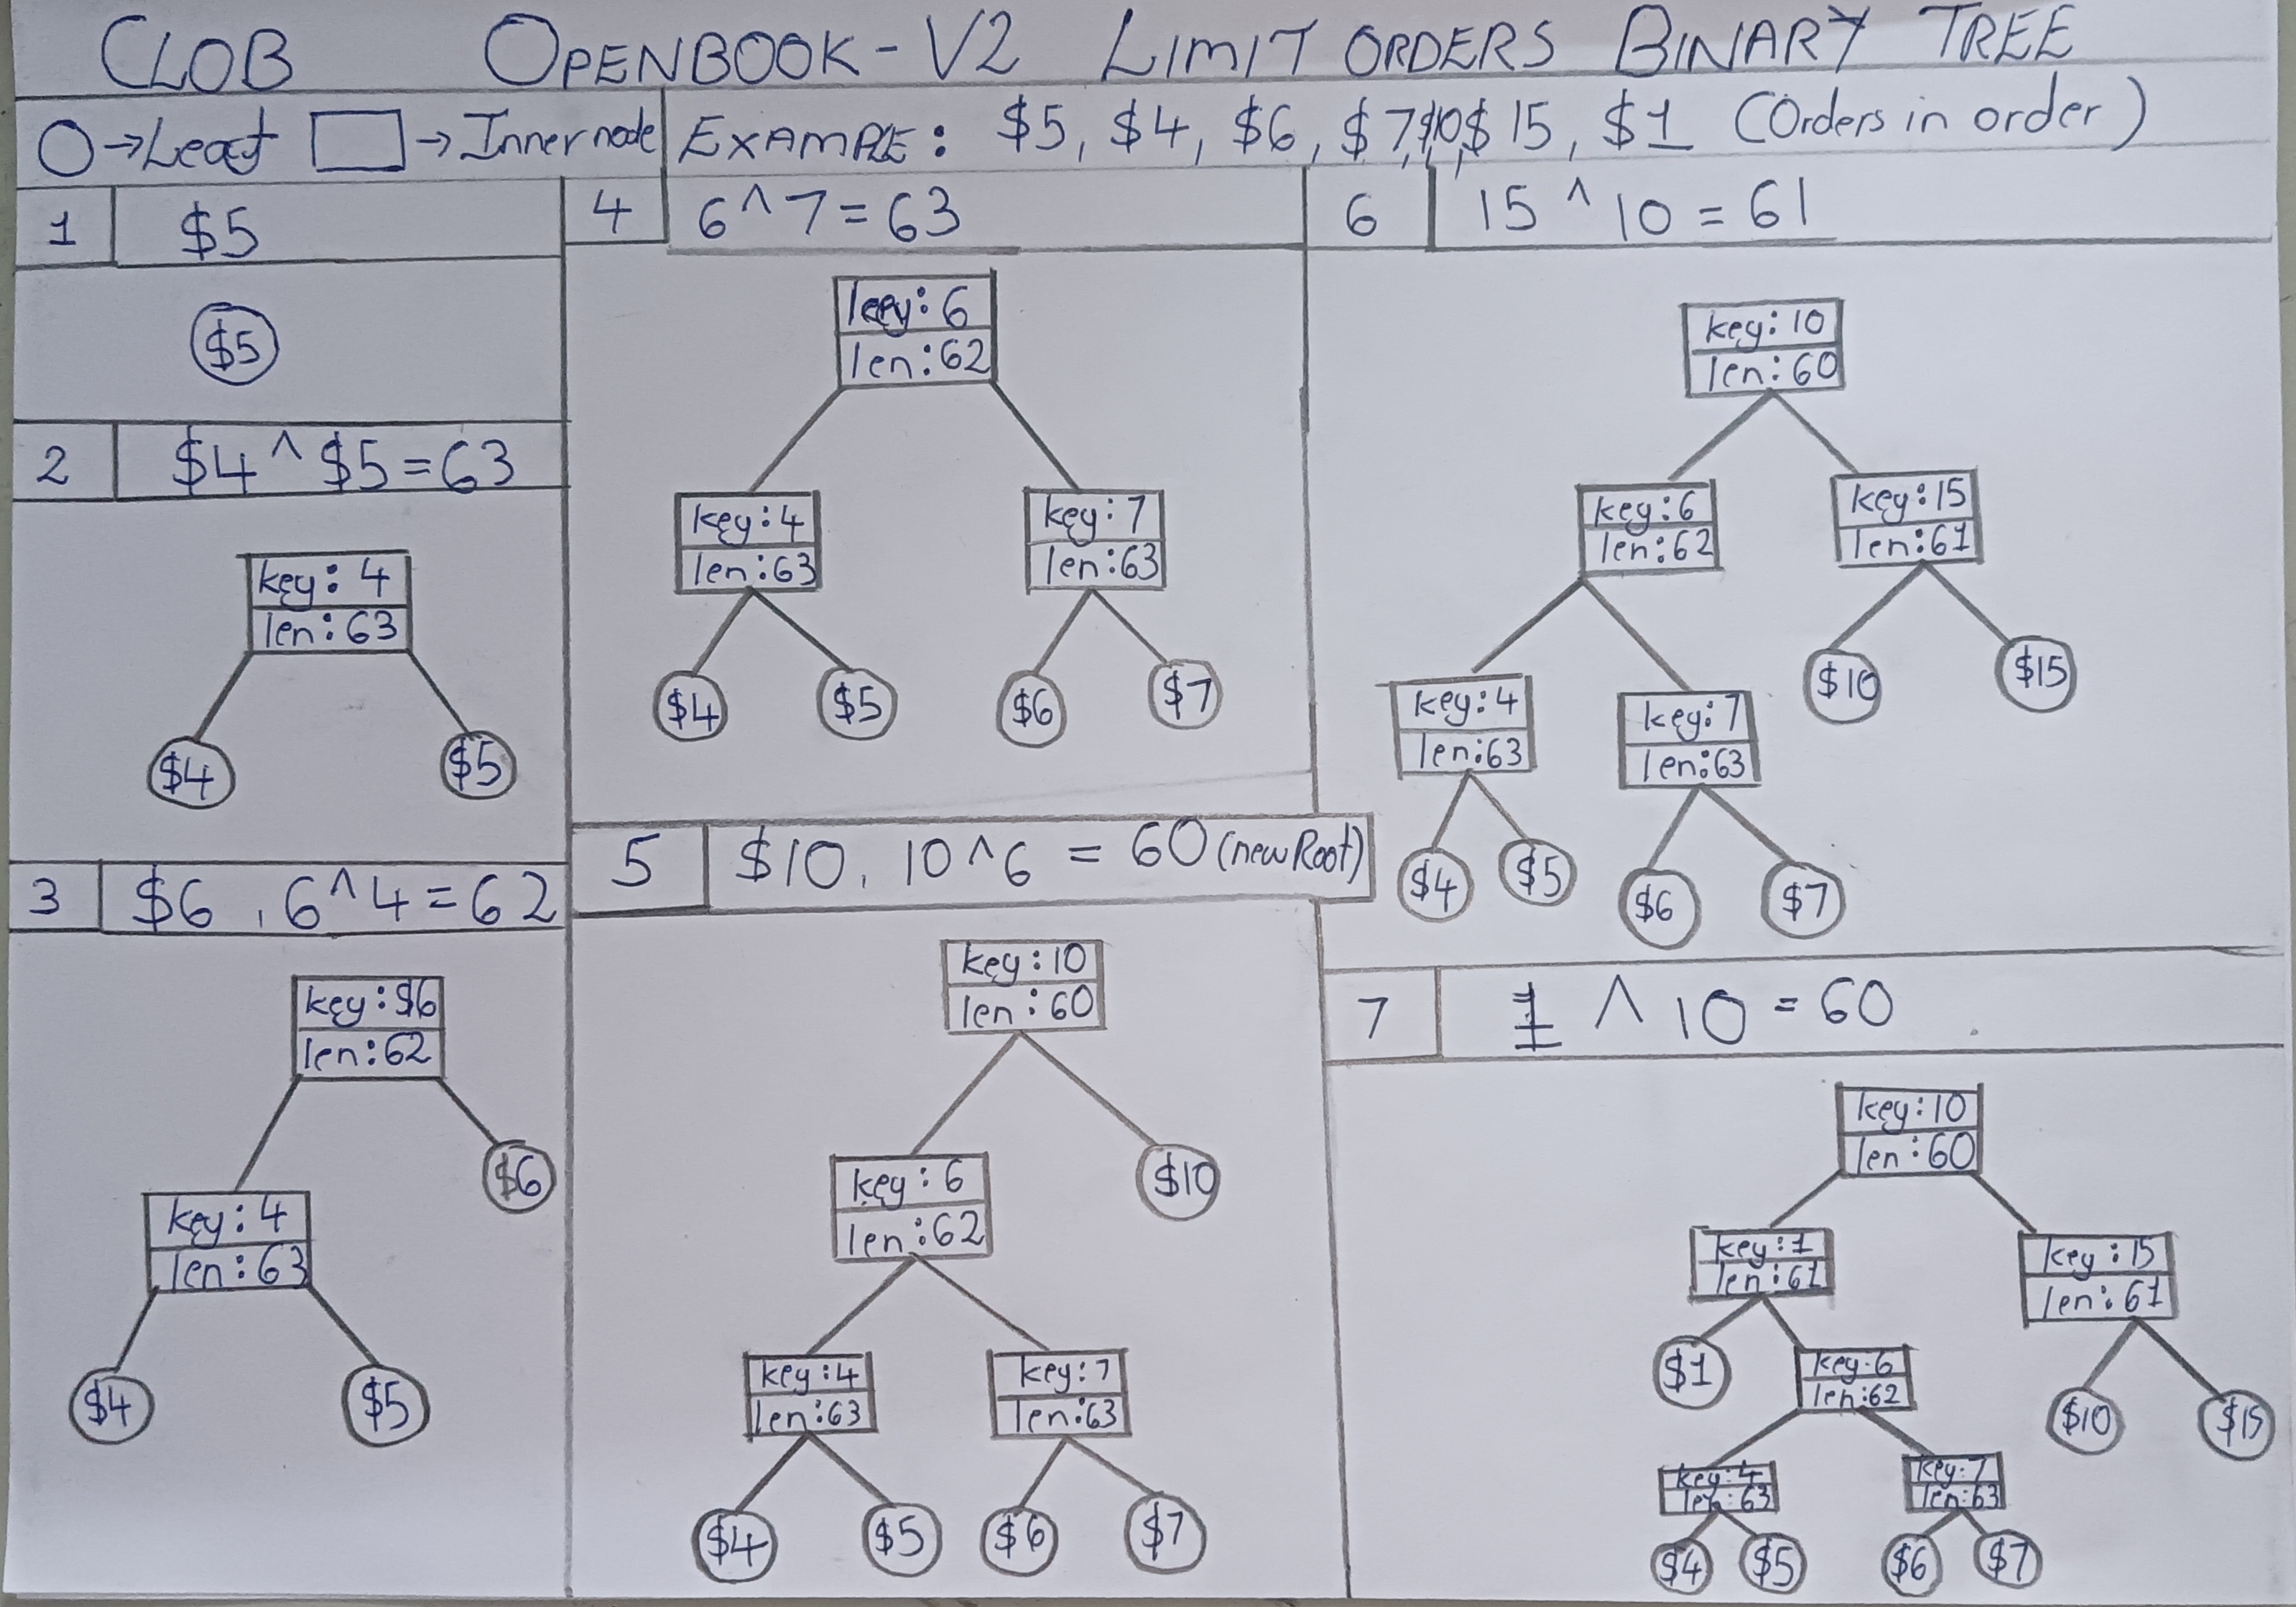 CLOB OPENBOOK-V2 LIMIT ORDERS BINARY TREE
→Leaf →Inner node
EXAMPLE: $5, $4, $6, $7, $10, $15, $1 (Orders in order)
1 $5
$5
2 $4 ^ $5 = 63
key: 4
len: 63
$4 $5
3 $6, 6^4 = 62
key: $6
len: 62
$6
key: 4
len: 63
$4 $5
4 6^7 = 63
key: 6
len: 62
key: 4 key: 7
len: 63 len: 63
$4 $5 $6 $7
5 $10, 10^6 = 60 (new Root)
key: 10
len: 60
key: 6 $10
len: 62
key: 4 key: 7
len: 63 len: 63
$4 $5 $6 $7
6 15 ^ 10 = 61
key: 10
len: 60
key: 6 key: 15
len: 62 len: 61
$10 $15
key: 4 key: 7
len: 63 len: 63
$4 $5 $6 $7
7 1 ^ 10 = 60
key: 10
len: 60
key: 1 key: 15
len: 61 len: 61
$1 key: 6 $10 $15
len: 62
key: 4 key: 7
len: 63 len: 63
$4 $5 $6 $7